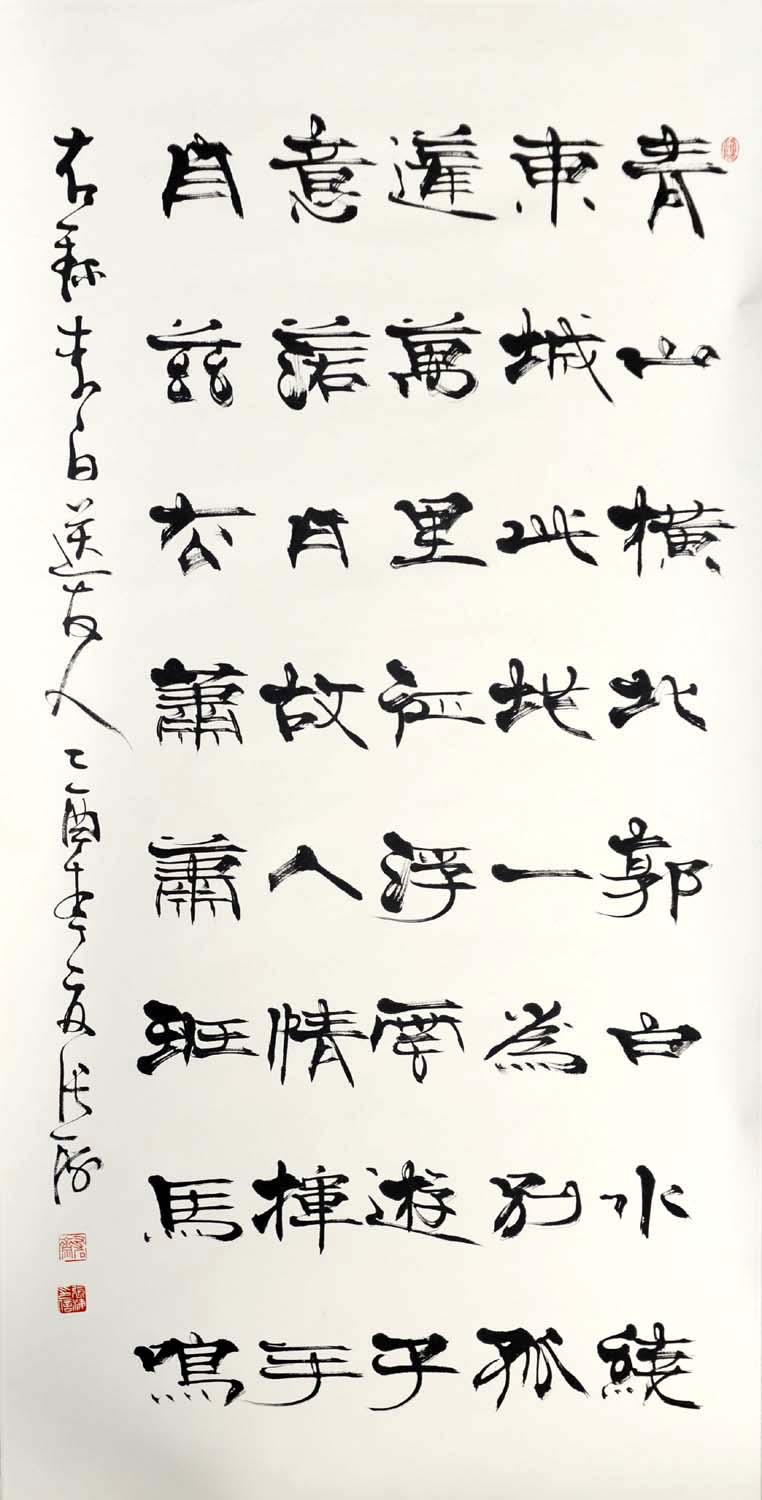 青山橫北郭白水繞
東城此地一為別孤
蓬萬里征浮雲遊子
意落日故人情揮手
自茲去蕭蕭班馬鳴
右錄李白送友人乙酉春張